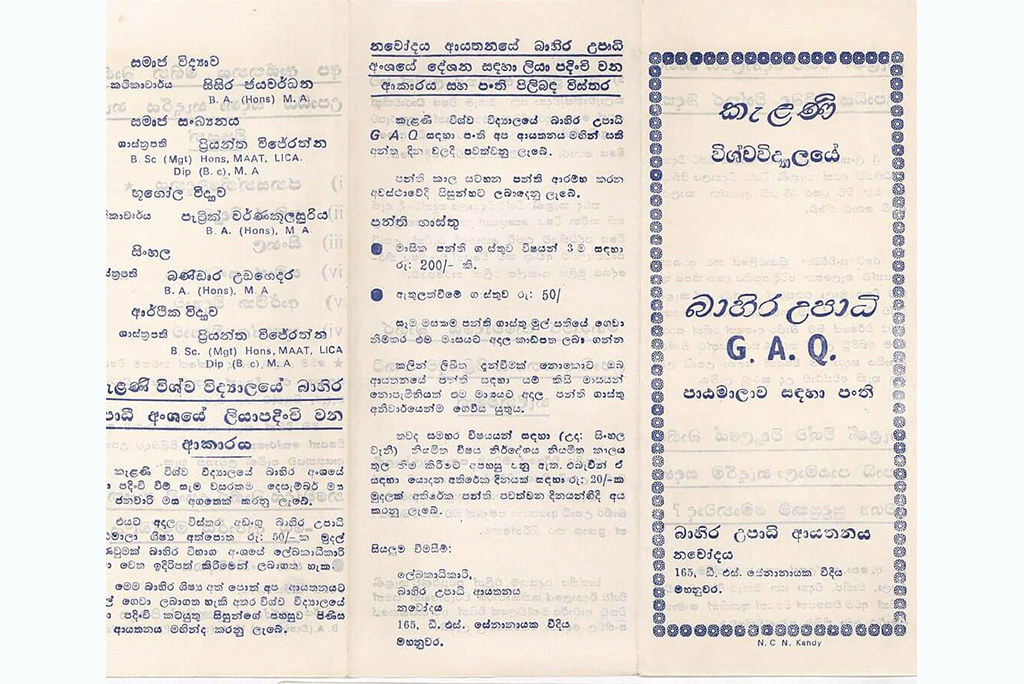 සමාජ විද්‍යාව
කථිකාචාර්ය සිසිර ජයවර්ධන
B. A. (Hons) M. A.
සමාජ සංඛ්‍යානය
ශාස්ත්‍රපති ප්‍රියන්ත විජේරත්න
B. Sc (Mgt) Hons, MAAT, LICA.
Dip (B. c), M. A
භූගෝල විද්‍යාව
කාචාර්ය පැට්‍රික් වර්ණකුලසූරිය
B. A. (Hons), M A
සිංහල
ස්ත්‍රපති බණ්ඩාර උඩගෙදර
B. A. (Hons), M. A
ආර්ථික විද්‍යාව
ශාස්ත්‍රපති ප්‍රියන්ත විජේරත්න
B Sc. (Mgt) Hons, MAAT, LICA
Dip (B c), M. A
ළණි විශ්ව විද්‍යාලයේ බාහිර
පාධි අංශයේ ලියාපදිංචි වන
ආකාරය
කැළණි විශ්ව විද්‍යාලයේ බාහිර අංශයේ
පදිංචි වීම් සෑම වසරකම දෙසැම්බර් මස
ජනවාරි මස අගතෙක් කරනු ලැබේ.
එයට අදාල විස්තර අඩංගු බාහිර උපාධි
මාලා ශිෂ්‍ය අත්පොත රු: 50/-ක මුදල්
වුමක් බාහිර විභාග අංශයේ ලේඛකාධිකාරි
වෙත ඉදිරිපත් කිරීමෙන් ලබාගත හැක
මෙම බාහිර ශිෂ්‍ය අත් පොත් අප ආයතනයට
ල් ගෙවා ලබාගත හැකි අතර විශ්ව විද්‍යාලයේ
දිංචි කටයුතු සිසුන්ගේ පහසුව පිණිස
ආයතනය මගින්ද කරනු ලැබේ.
නවෝදය ආයතනයේ බාහිර උපාධි
අංශයේ දේශන සඳහා ලියා පදිංචි වන
ආකාරය සහ පංති පිලිබඳ විස්තර
කැළණි විශ්ව විද්‍යාලයේ බාහිර උපාධි
G A Q සඳහා පංති අප ආයතනය මගින් සති
අන්ත දින වලදී පවත්වනු ලැබේ.
පන්ති කාල යටහන පන්ති ආරම්භ කරන
අවස්ථාවේදී සිසුන්හට ලබාදෙනු ලැබේ.
පන්ති ගාස්තු
මාසික පන්ති ගාස්තුව විෂයන් 3 ම සඳහා
රු: 200/- කි.
ඇතුලත්වීමේ ගාස්තුව රු: 50/
සෑම මසකම පන්ති ගාස්තු මුල් සතියේ ගෙවා
නිමකර එම මාසයට අදාල කාඩ්පත ලබා ගන්න
කලින් ලිඛිත දැන්වීමක් නොකොට ඔබ
ආයතනයේ පන්ති සඳහා යම් කිසි මාසයක්
නොපැමිනියත් එම මාසයට අදාල පන්ති ගාස්තු
අනිවාර්යෙන්ම ගෙවිය යුතුය.
තවද සමහර විෂයයන් සඳහා (උදා: සිංහල
වැනි) නියමිත විෂය නිර්දේශය නියමිත කාලය
තුල නිම කිරීමට අපහසු වනු ඇත. එබැවින් ඒ
සඳහා යොදන අතිරේක දිනයක් සඳහා රු: 20/-ක
මුදලක් අතිරේක පන්ති පවත්වන දිනයන්හිදී අය
කරනු ලැබේ.
සියලුම විමසීම්:
ලේඛකාධිකාරී,
බාහිර උපාධි ආයතනය
නවෝදය
165, ඩී. එස්. සේනානායක වීදිය
මහනුවර.
කැළණි
විශ්වවිද්‍යාලයේ
බාහිර උපාධි
G. A. Q.
පාඨමාලාව සඳහා පංති
බාහිර උපාධි ආයතනය
නවෝදය
165, ඩී. එස්. සේනානායක වීදිය
මහනුවර.
N. C N. Kandy